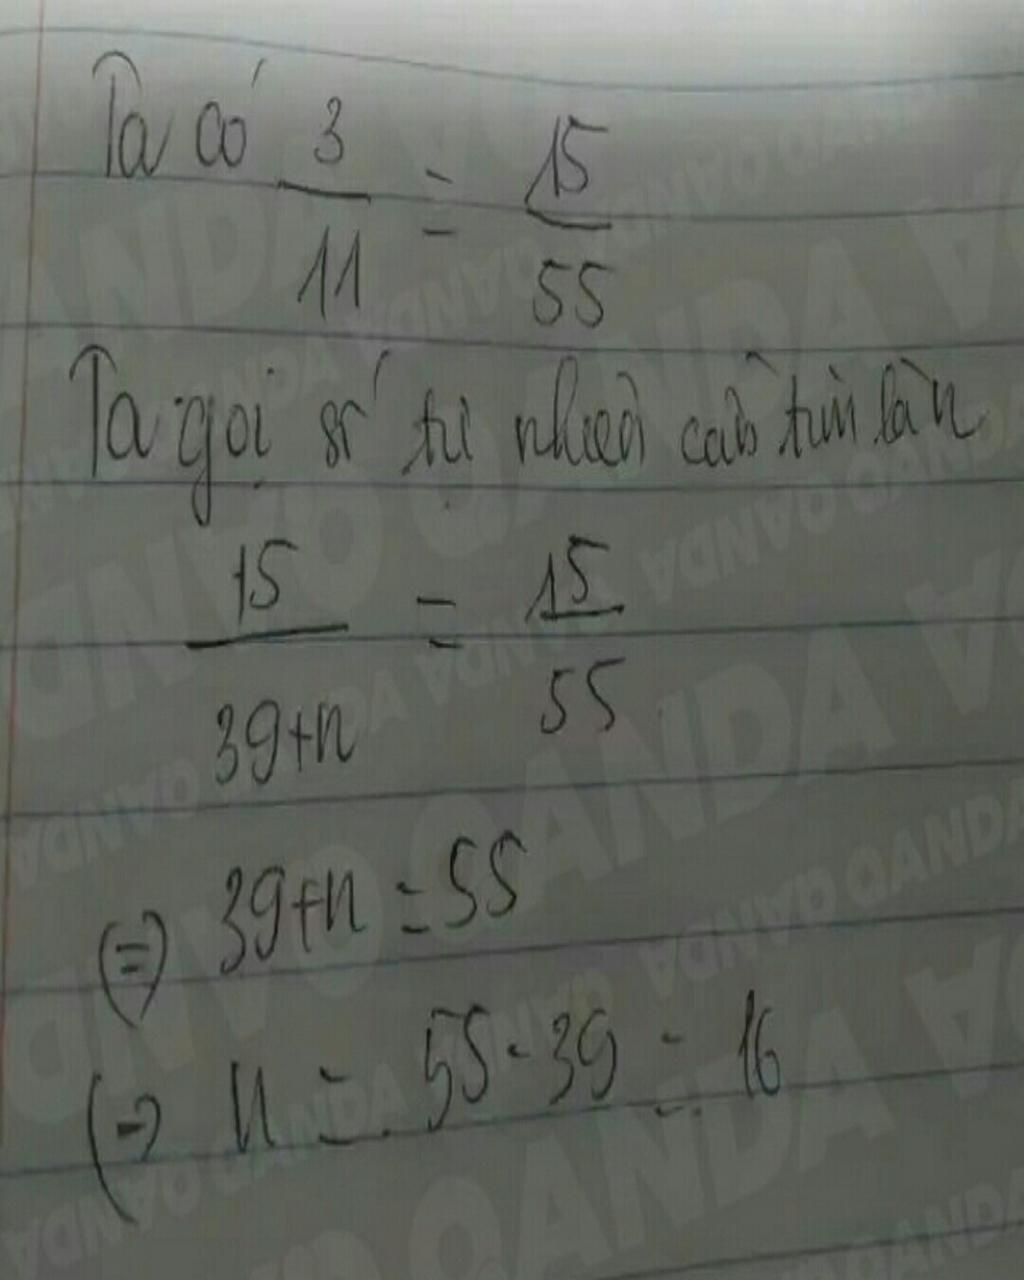 Ta có 3/11 = 15/55
Ta gọi số tự nhiên cần tìm là n
15/39+n = 15/55
(=) 39+n = 55
(=) n = 55 - 39 = 16
QANDA